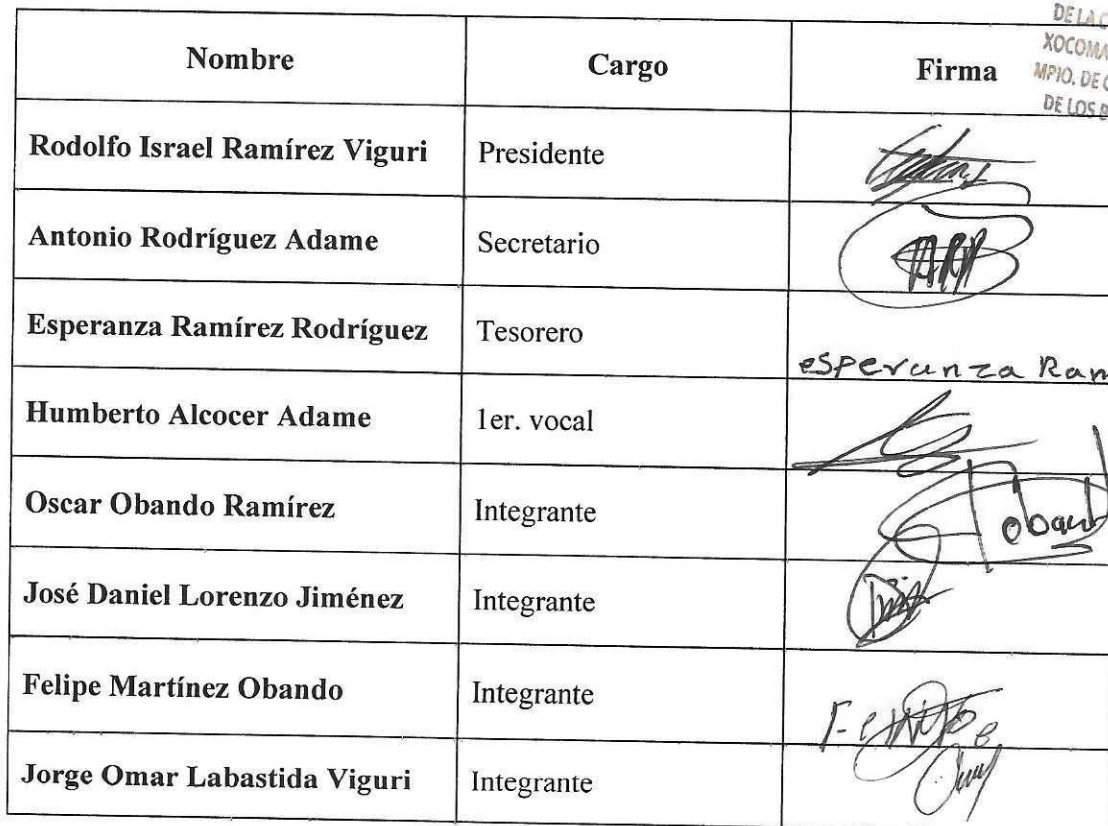 DE LA
XOCOMA
MPIO. DE
DE LOS
Nombre Cargo Firma
Rodolfo Israel Ramírez Viguri Presidente
Antonio Rodríguez Adame Secretario
Esperanza Ramírez Rodríguez Tesorero
esperanza Ram
Humberto Alcocer Adame 1er. vocal
Oscar Obando Ramírez Integrante
José Daniel Lorenzo Jiménez Integrante
Felipe Martínez Obando Integrante
Jorge Omar Labastida Viguri Integrante